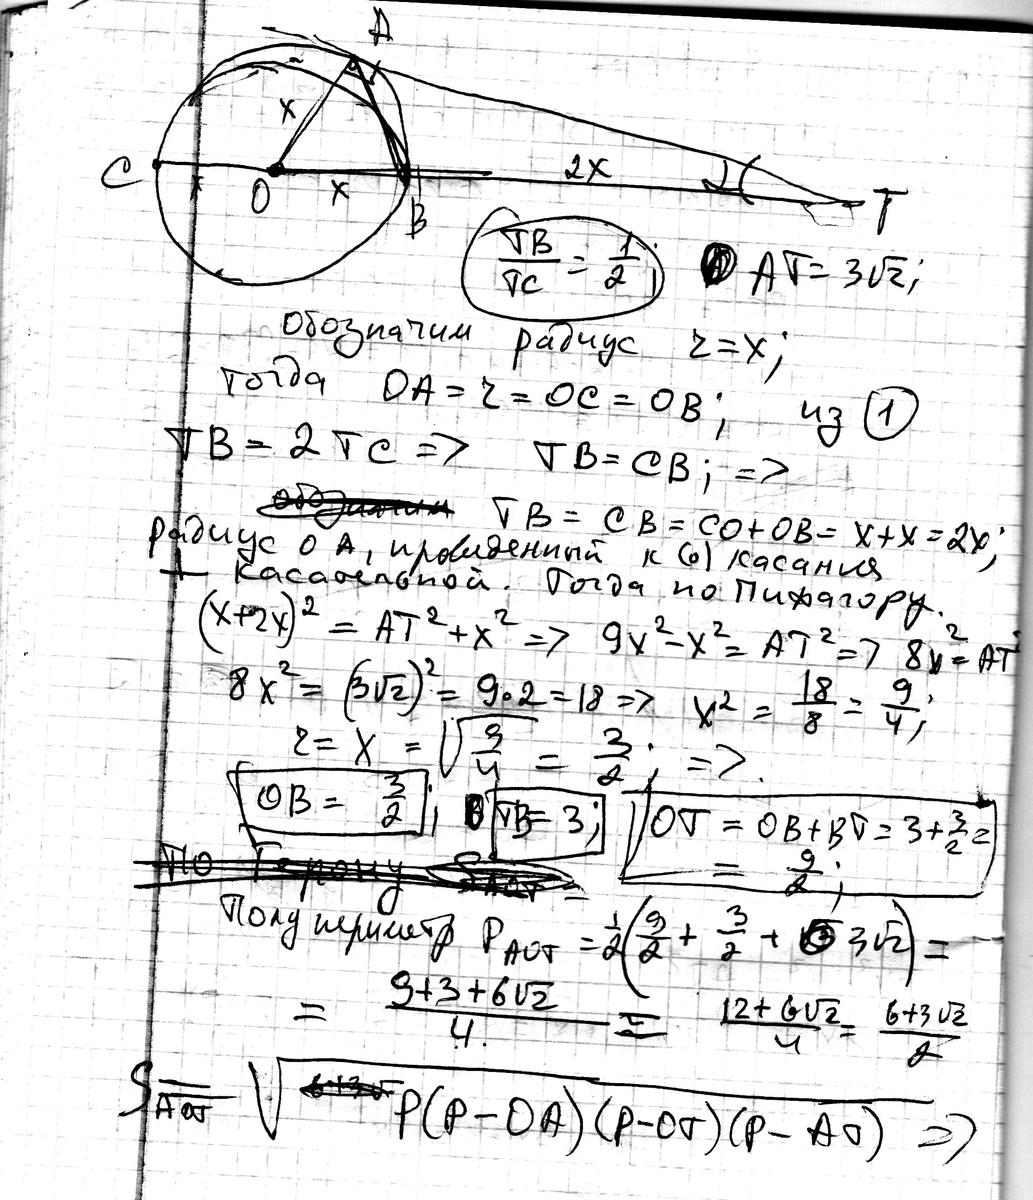 A
x
C
x
O
x
B
2x
T
TB/TC = 1/2; AT = 3√2;
обозначим радиус r = x;
тогда OA = r = OC = OB; из ①
TB = 2TC => TB = CB; =>
TB = CB = CO + OB = x + x = 2x;
радиус OA, проведенный к (·) касания
⊥ касательной. Тогда по Пифагору.
(x+2x)² = AT² + x² => 9x² - x² = AT² => 8x² = AT²
8x² = (3√2)² = 9·2 = 18 => x² = 18/8 = 9/4;
r = x = √(9/4) = 3/2; =>.
OB = 3/2; TB = 3; OT = OB + BT = 3 + 3/2 =
= 9/2;
По Герону S AOT =
Полупериметр P AOT = 1/2(9/2 + 3/2 + 3√2) =
= (9+3+6√2)/4 = (12+6√2)/4 = (6+3√2)/2
S AOT √(P(P-OA)(P-OT)(P-AT)) =>